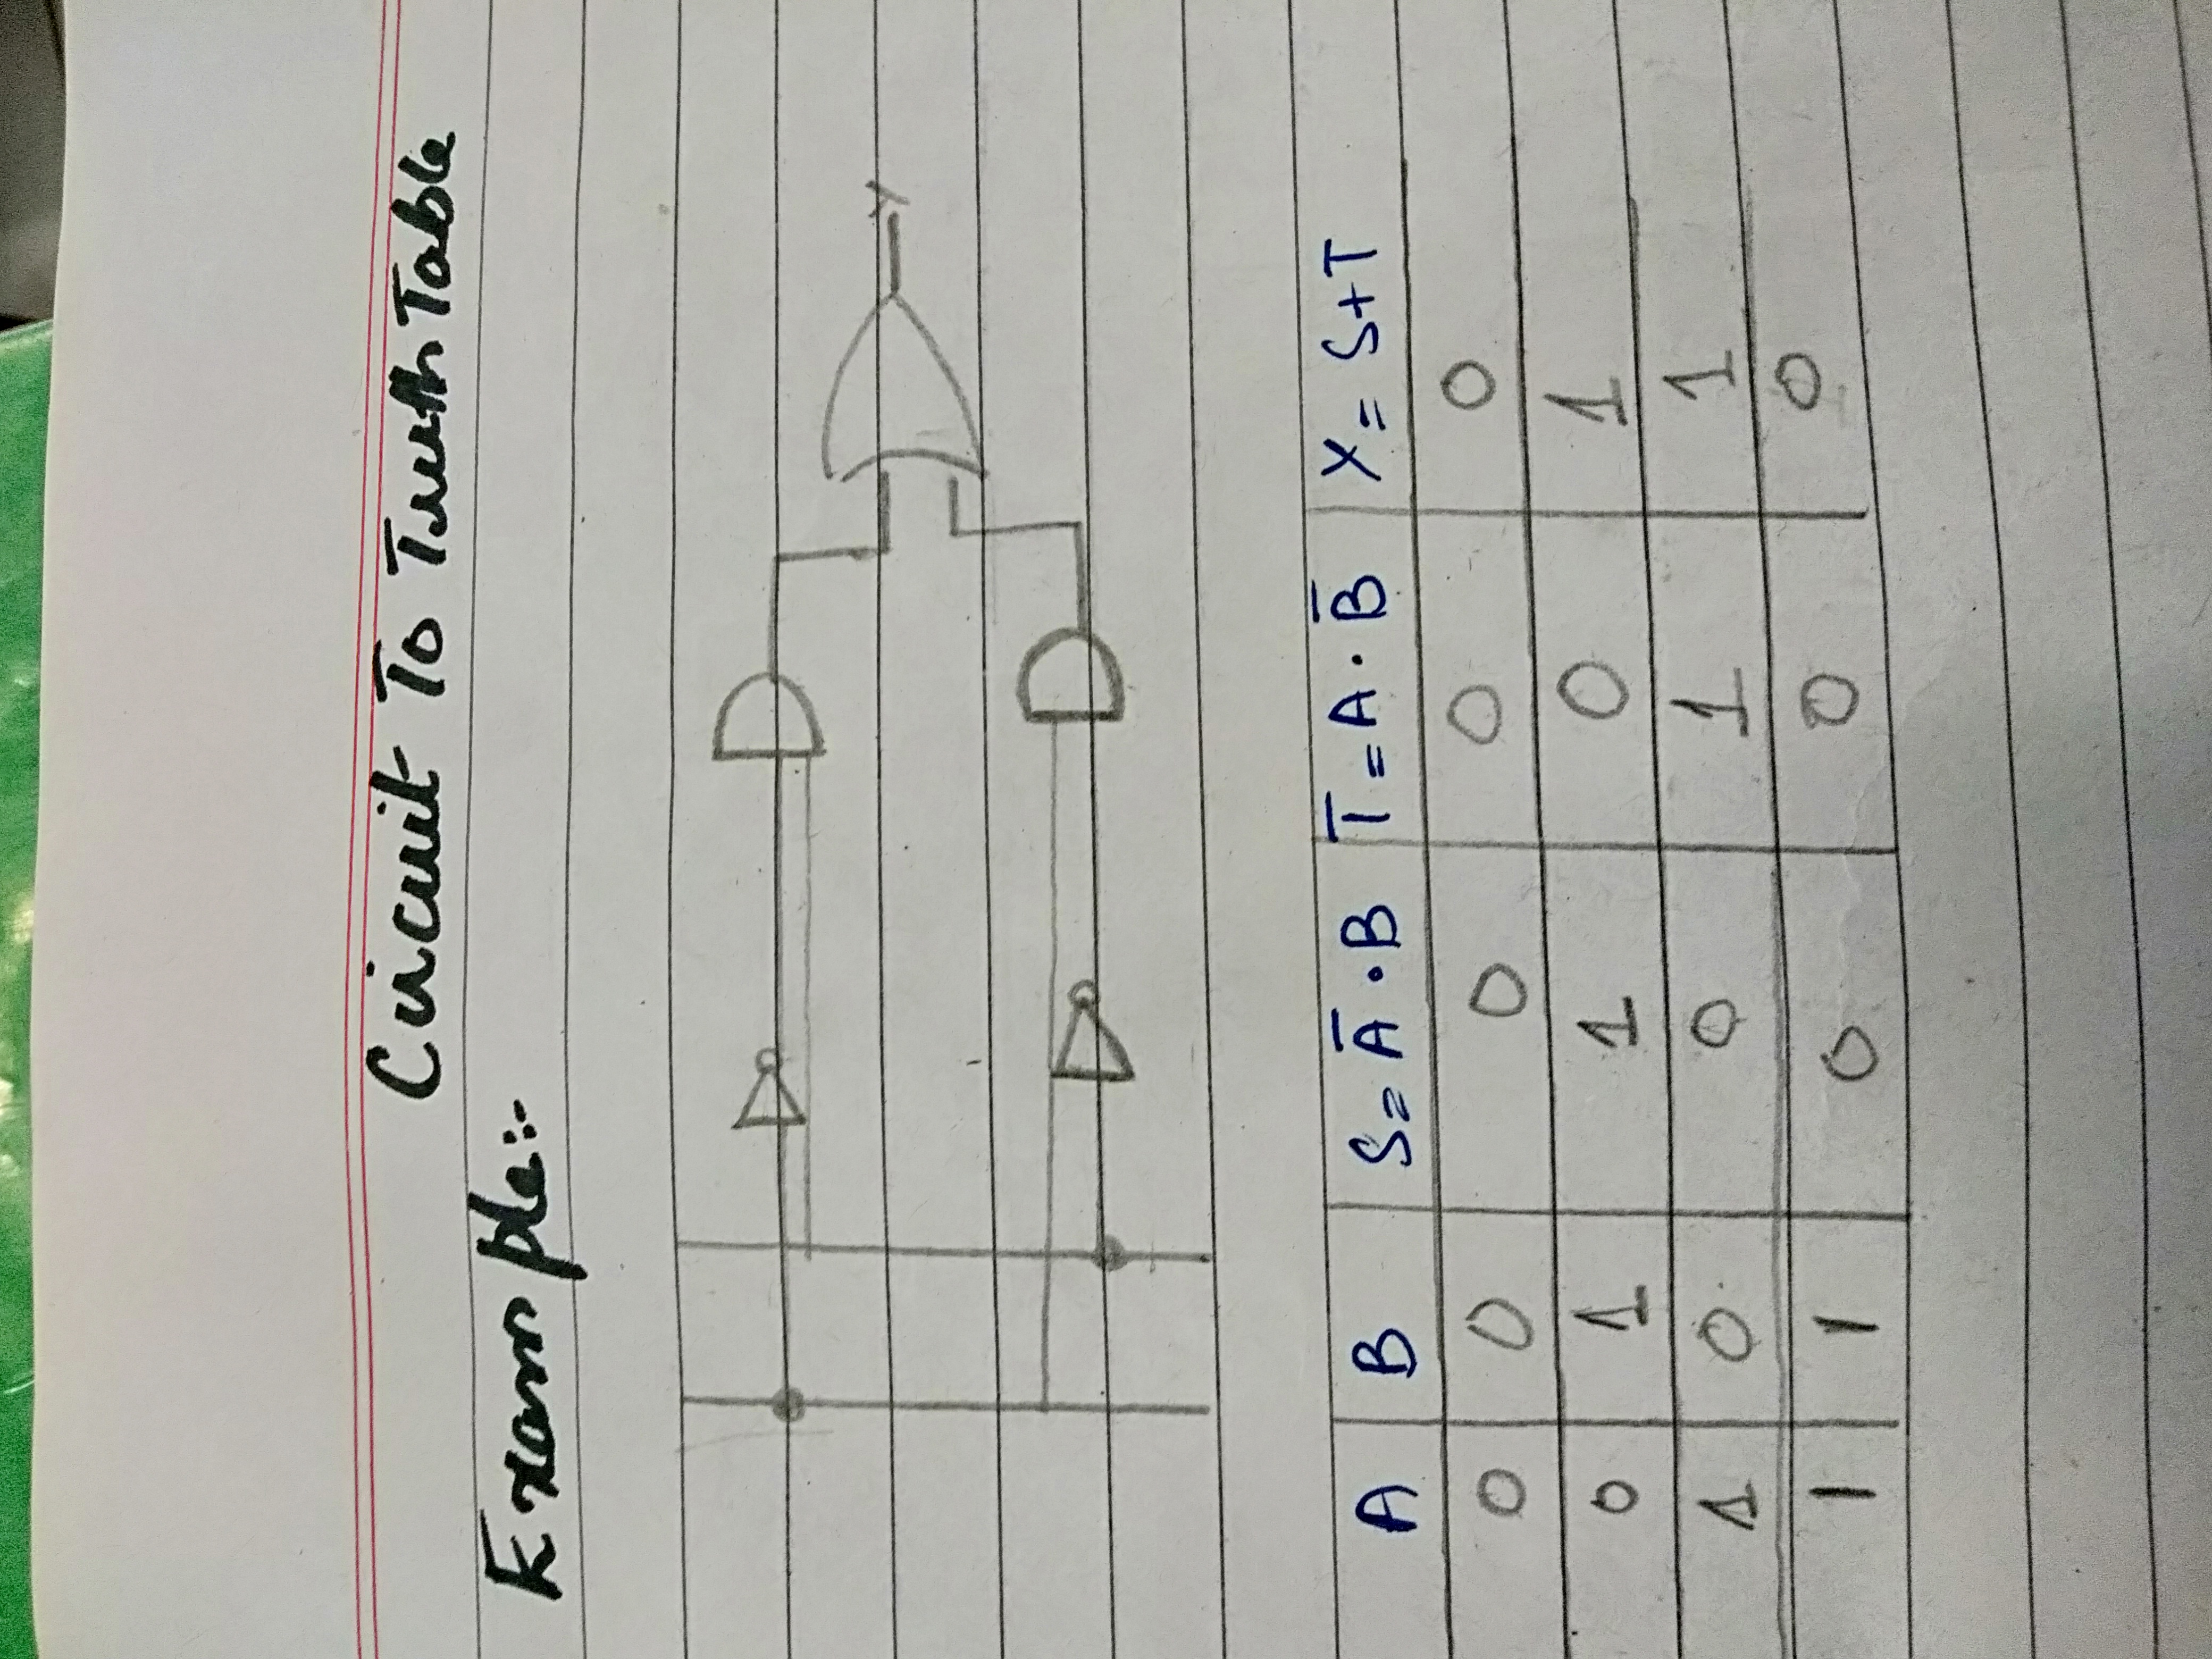 Circuit To Truth Table
Example:-
A B S = A̅ · B T = A · B̅ X = S + T
0 0 0 0 0
0 1 1 0 1
1 0 0 1 1
1 1 0 0 0